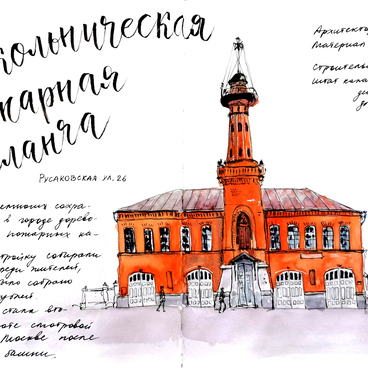 кольническая
жарная
аланча
Русаковская ул. 26
емногих сохра-
в городе дерево-
пожарных ка-
тройку собирали
реди жителей,
ыло собрано
ублей
стала вто-
оте смотровой
Москве после
башни.
Архитекто
Материал
Строитель
Штат кала
де